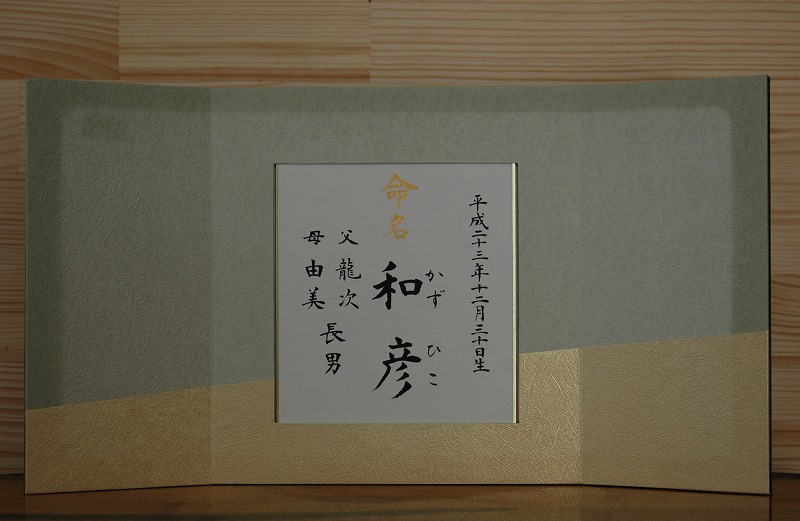 平成二十三年十二月三十日生
命名
かず ひこ
和彦
父 龍次
母 由美
長男